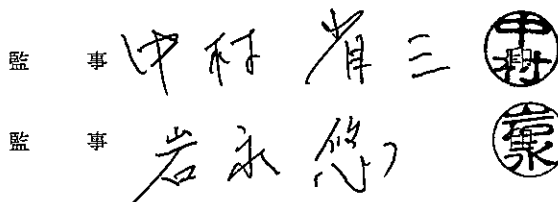 監 事 中村 省三 中村
監 事 岩永 悠 岩永